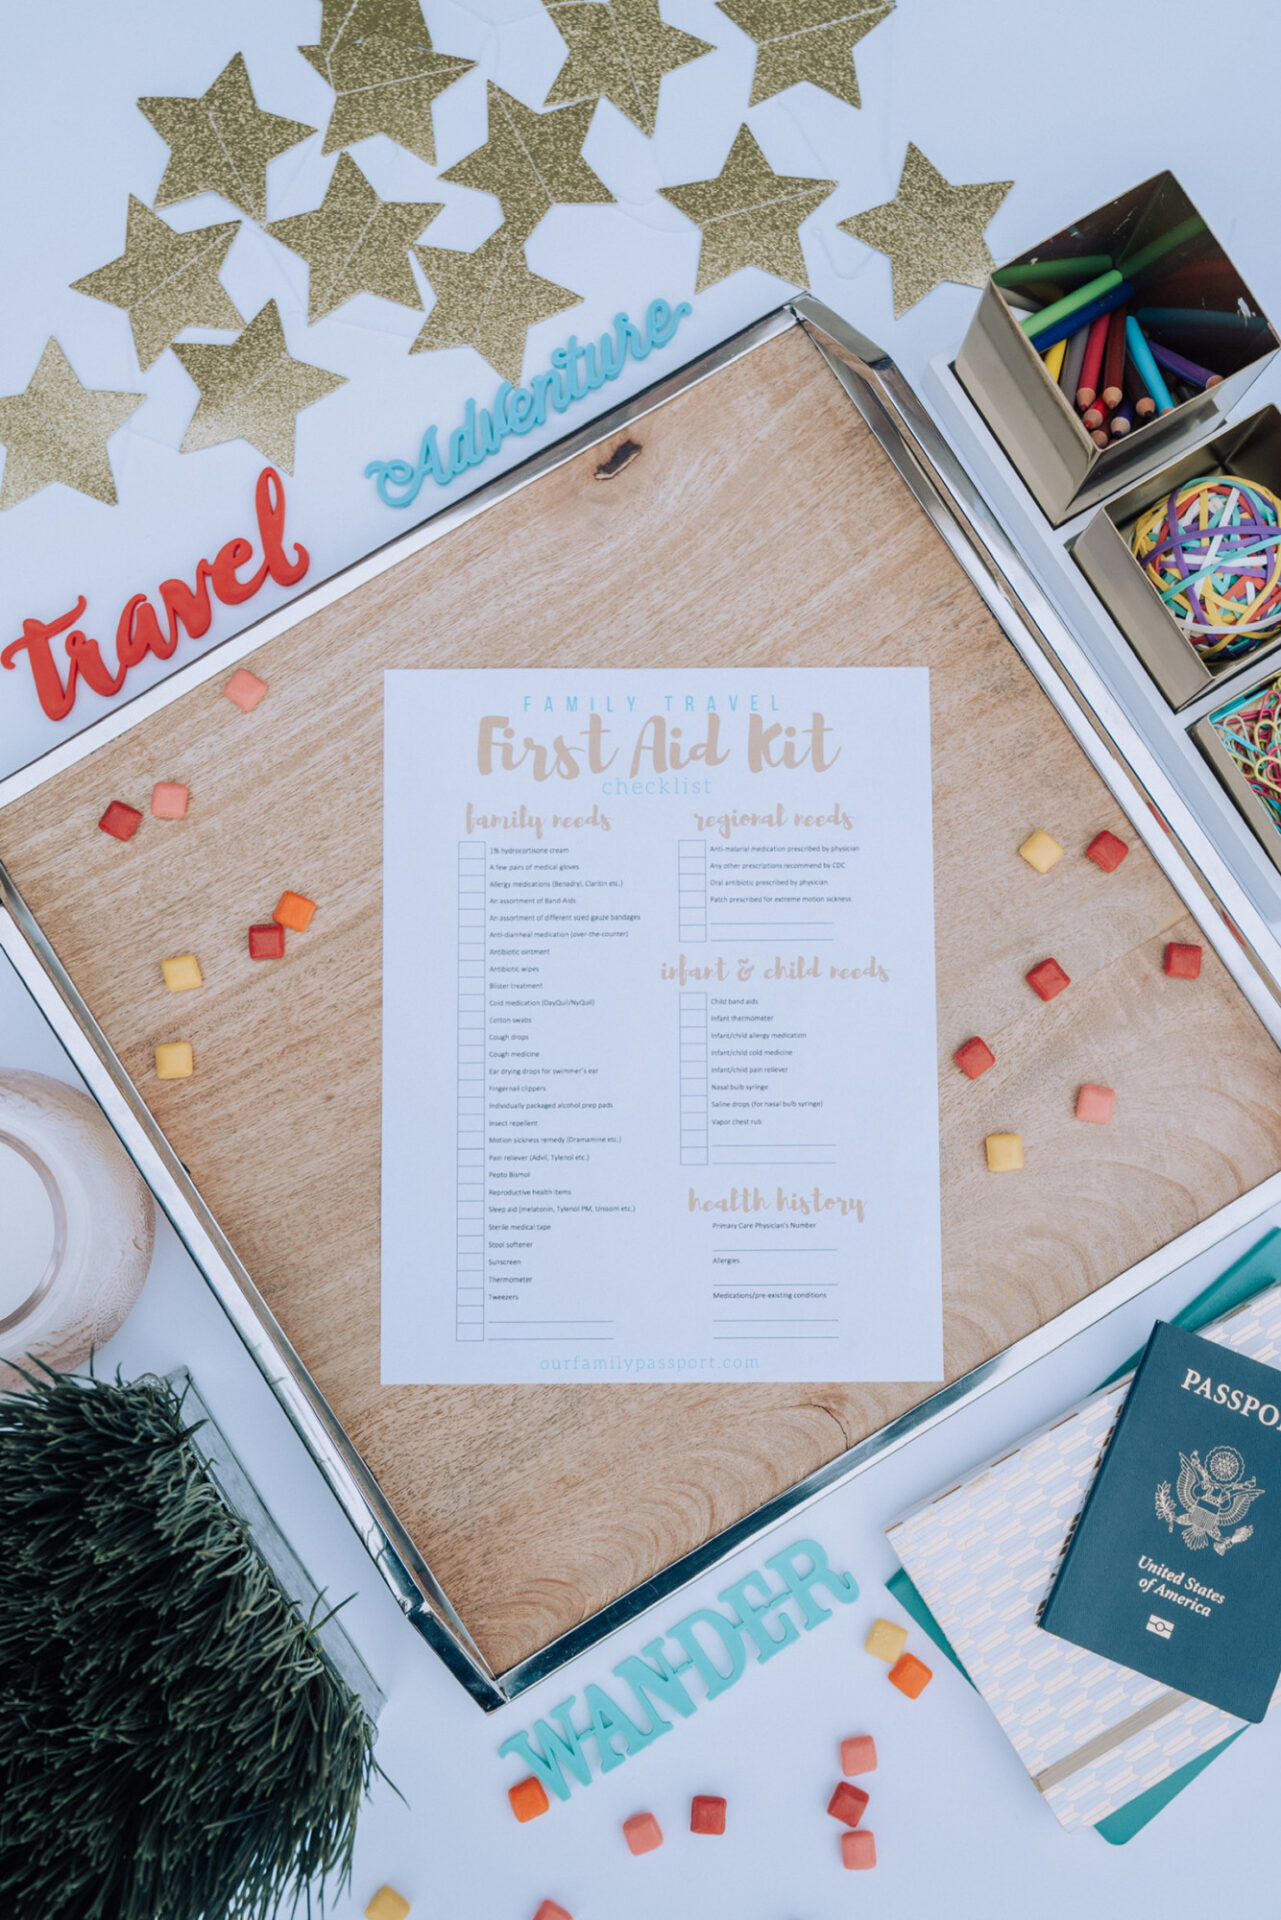 Adventure
Travel
FAMILY TRAVEL
First Aid Kit
checklist
family needs
1% hydrocortisone cream
A few pairs of medical gloves
Allergy medications (Benadryl, Claritin etc.)
An assortment of Band-Aids
An assortment of different sized gauze bandages
Anti-diarrheal medication (over-the-counter)
Antibiotic ointment
Antibiotic wipes
Blister treatment
Cold medication (DayQuil/NyQuil)
Cotton swabs
Cough drops
Cough medicine
Ear drying drops for swimmer's ear
Fingernail clippers
Individually packaged alcohol prep pads
Insect repellent
Motion sickness remedy (Dramamine etc.)
Pain reliever (Advil, Tylenol etc.)
Pepto Bismol
Reproductive health items
Sleep aid (melatonin, Tylenol PM, Unisom etc.)
Sterile medical tape
Stool softener
Sunscreen
Thermometer
Tweezers
regional needs
Anti-malarial medication prescribed by physician
Any other prescriptions recommend by CDC
Oral antibiotic prescribed by physician
Patch prescribed for extreme motion sickness
infant & child needs
Child band aids
Infant thermometer
Infant/child allergy medication
Infant/child cold medicine
Infant/child pain reliever
Nasal bulb syringe
Saline drops (for nasal bulb syringe)
Vapor chest rub
health history
Primary Care Physician's Number
Allergies
Medications/pre-existing conditions
ourfamilypassport.com
PASSPO
United States
of America
WANDER